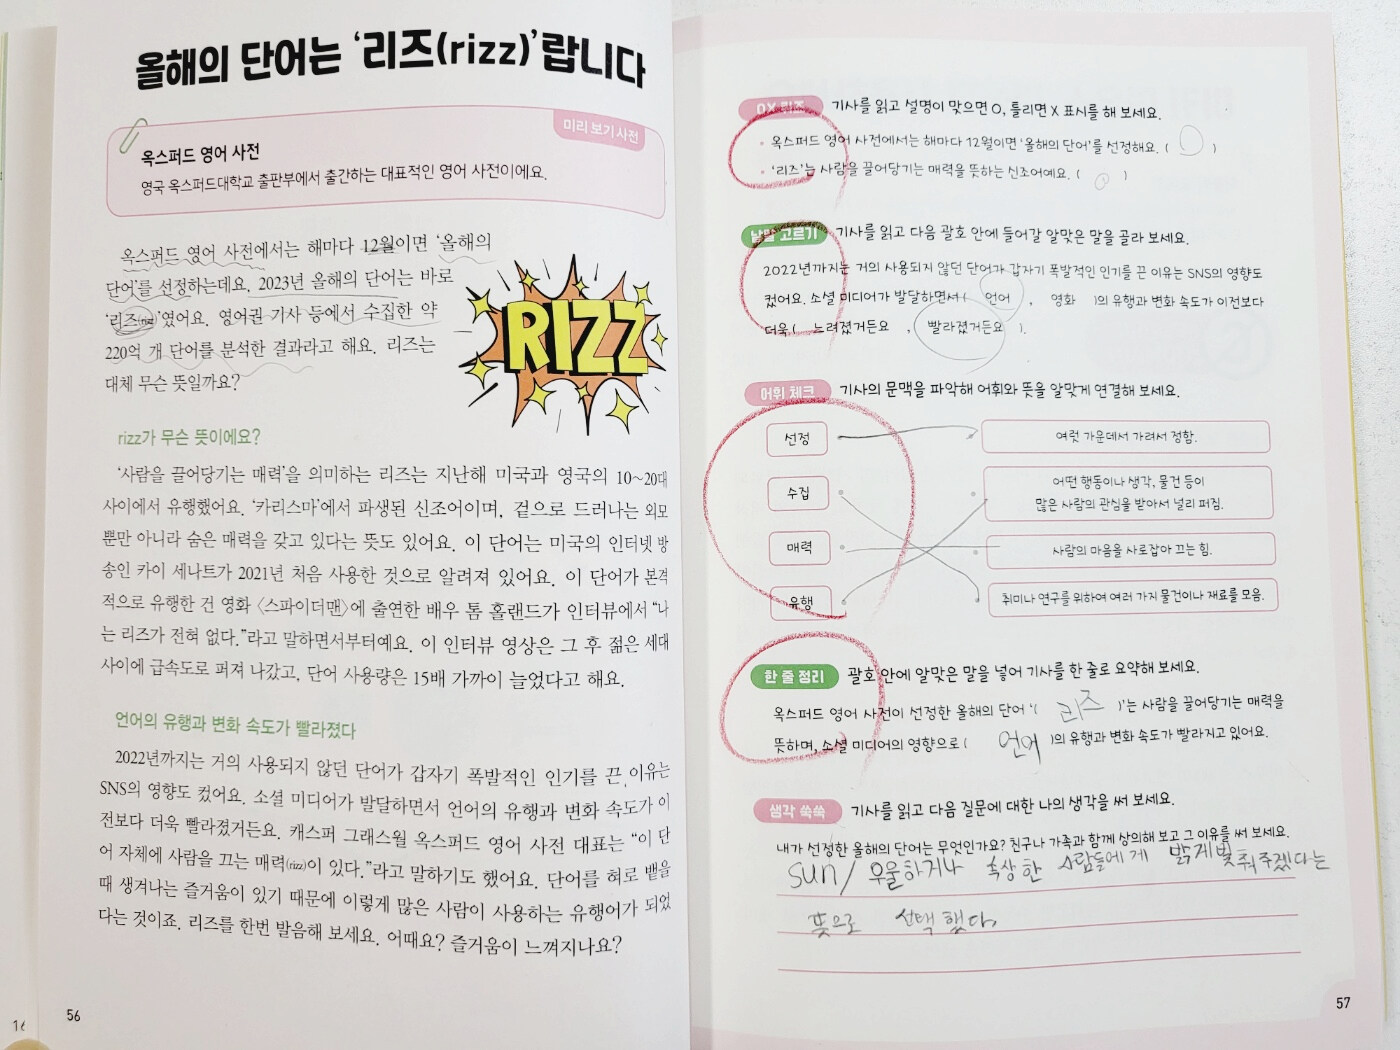 올해의 단어는 ‘리즈(rizz)’랍니다
미리 보기 사전
옥스퍼드 영어 사전
영국 옥스퍼드대학교 출판부에서 출간하는 대표적인 영어 사전이에요.
옥스퍼드 영어 사전에서는 해마다 12월이면 ‘올해의
단어’를 선정하는데요, 2023년 올해의 단어는 바로
‘리즈(rizz)’였어요. 영어권 기사 등에서 수집한 약
220억 개 단어를 분석한 결과라고 해요. 리즈는
대체 무슨 뜻일까요?
RIZZ
rizz가 무슨 뜻이에요?
‘사람을 끌어당기는 매력’을 의미하는 리즈는 지난해 미국과 영국의 10~20대
사이에서 유행했어요. ‘카리스마’에서 파생된 신조어이며, 겉으로 드러나는 외모
뿐만 아니라 숨은 매력을 갖고 있다는 뜻도 있어요. 이 단어는 미국의 인터넷 방
송인 카이 세나트가 2021년 처음 사용한 것으로 알려져 있어요. 이 단어가 본격
적으로 유행한 건 영화 〈스파이더맨〉에 출연한 배우 톰 홀랜드가 인터뷰에서 “나
는 리즈가 전혀 없다.”라고 말하면서부터예요. 이 인터뷰 영상은 그 후 젊은 세대
사이에 급속도로 퍼져 나갔고, 단어 사용량은 15배 가까이 늘었다고 해요.
언어의 유행과 변화 속도가 빨라졌다
2022년까지는 거의 사용되지 않던 단어가 갑자기 폭발적인 인기를 끈 이유는
SNS의 영향도 컸어요. 소셜 미디어가 발달하면서 언어의 유행과 변화 속도가 이
전보다 더욱 빨라졌거든요. 캐스퍼 그래스월 옥스퍼드 영어 사전 대표는 “이 단
어 자체에 사람을 끄는 매력(rizz)이 있다.”라고 말하기도 했어요. 단어를 혀로 뱉을
때 생겨나는 즐거움이 있기 때문에 이렇게 많은 사람이 사용하는 유행어가 되었
다는 것이죠. 리즈를 한번 발음해 보세요. 어때요? 즐거움이 느껴지나요?
56
OX 퀴즈 기사를 읽고 설명이 맞으면 O, 틀리면 X 표시를 해 보세요.
• 옥스퍼드 영어 사전에서는 해마다 12월이면 ‘올해의 단어’를 선정해요. ( O )
• ‘리즈’는 사람을 끌어당기는 매력을 뜻하는 신조어예요. ( O )
낱말 고르기 기사를 읽고 다음 괄호 안에 들어갈 알맞은 말을 골라 보세요.
2022년까지는 거의 사용되지 않던 단어가 갑자기 폭발적인 인기를 끈 이유는 SNS의 영향도
컸어요. 소셜 미디어가 발달하면서 ( 언어 , 영화 )의 유행과 변화 속도가 이전보다
더욱 ( 느려졌거든요 , 빨라졌거든요 ).
어휘 체크 기사의 문맥을 파악해 어휘와 뜻을 알맞게 연결해 보세요.
선정
여럿 가운데서 가려서 정함.
수집
어떤 행동이나 생각, 물건 등이
많은 사람의 관심을 받아서 널리 퍼짐.
매력
사람의 마음을 사로잡아 끄는 힘.
유행
취미나 연구를 위하여 여러 가지 물건이나 재료를 모음.
한 줄 정리 괄호 안에 알맞은 말을 넣어 기사를 한 줄로 요약해 보세요.
옥스퍼드 영어 사전이 선정한 올해의 단어 ‘( 리즈 )’는 사람을 끌어당기는 매력을
뜻하며, 소셜 미디어의 영향으로 ( 언어 )의 유행과 변화 속도가 빨라지고 있어요.
생각 쑥쑥 기사를 읽고 다음 질문에 대한 나의 생각을 써 보세요.
내가 선정한 올해의 단어는 무엇인가요? 친구나 가족과 함께 상의해 보고 그 이유를 써 보세요.
sun/ 우울하거나 속상한 사람들에게 밝게 빛춰주겠다는
뜻으로 선택했다.
57